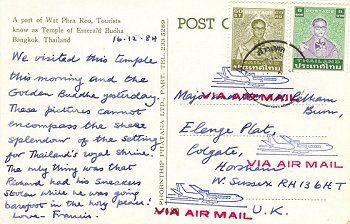 A part of Wat Phra Keo, Tourists
know as Temple of Emerald Budha
Bangkok. Thailand
16-12-84
We visited this temple
this morning and the
Golden Buddha yesterday.
These pictures cannot
encompass the sheer
splendour of the setting
for Thailand's royal shrine.
The only thing was that
Richard had his sneakers
stolen while he was going
barefoot in the holy places!
Love Francis.
PHORNTHIP PHATANA LTD., PART. TEL.
POST C
ประเทศไทย
THAILAND
ประเทศไทย
VIA AIR MAIL
Elenge Plat,
Colgate,
Horsham
VIA AIR MAIL
W. Sussex RH13 6HT
VIA AIR MAIL
U.K.